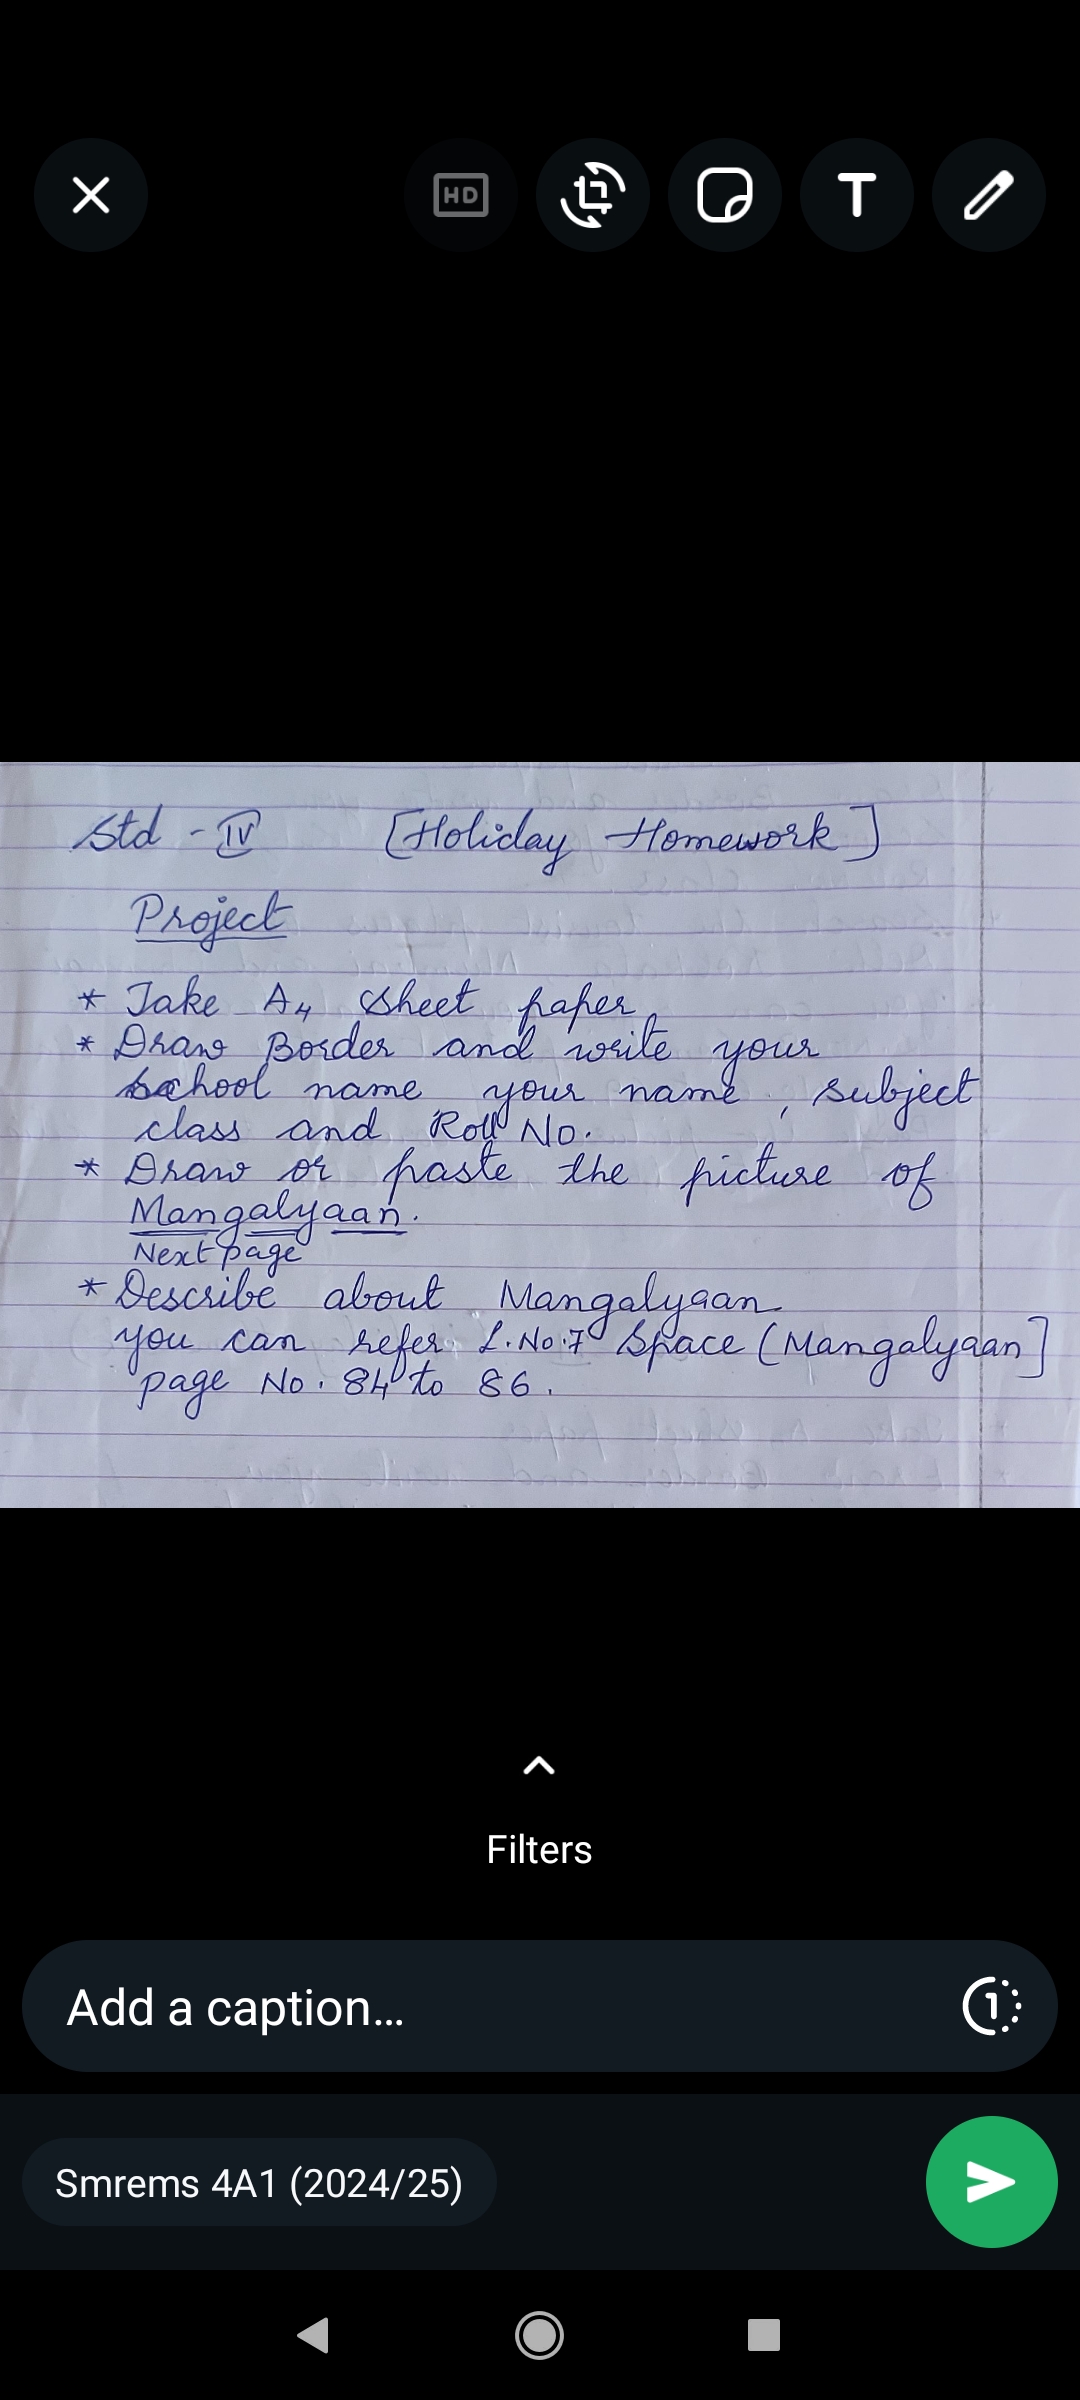 HD
T
Std - IV [Holiday Homework]
Project
* Take A4 sheet paper
* Draw Border and write your
school name your name, subject
class and Roll No.
* Draw or paste the picture of
Mangalyaan.
Next page
* Describe about Mangalyaan
you can refer L.No.7 Space (Mangalyaan]
page No. 84 to 86.
Filters
Add a caption...
1
Smrems 4A1 (2024/25)